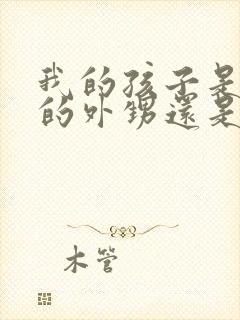 我的孩子是
的外甥還是
木管